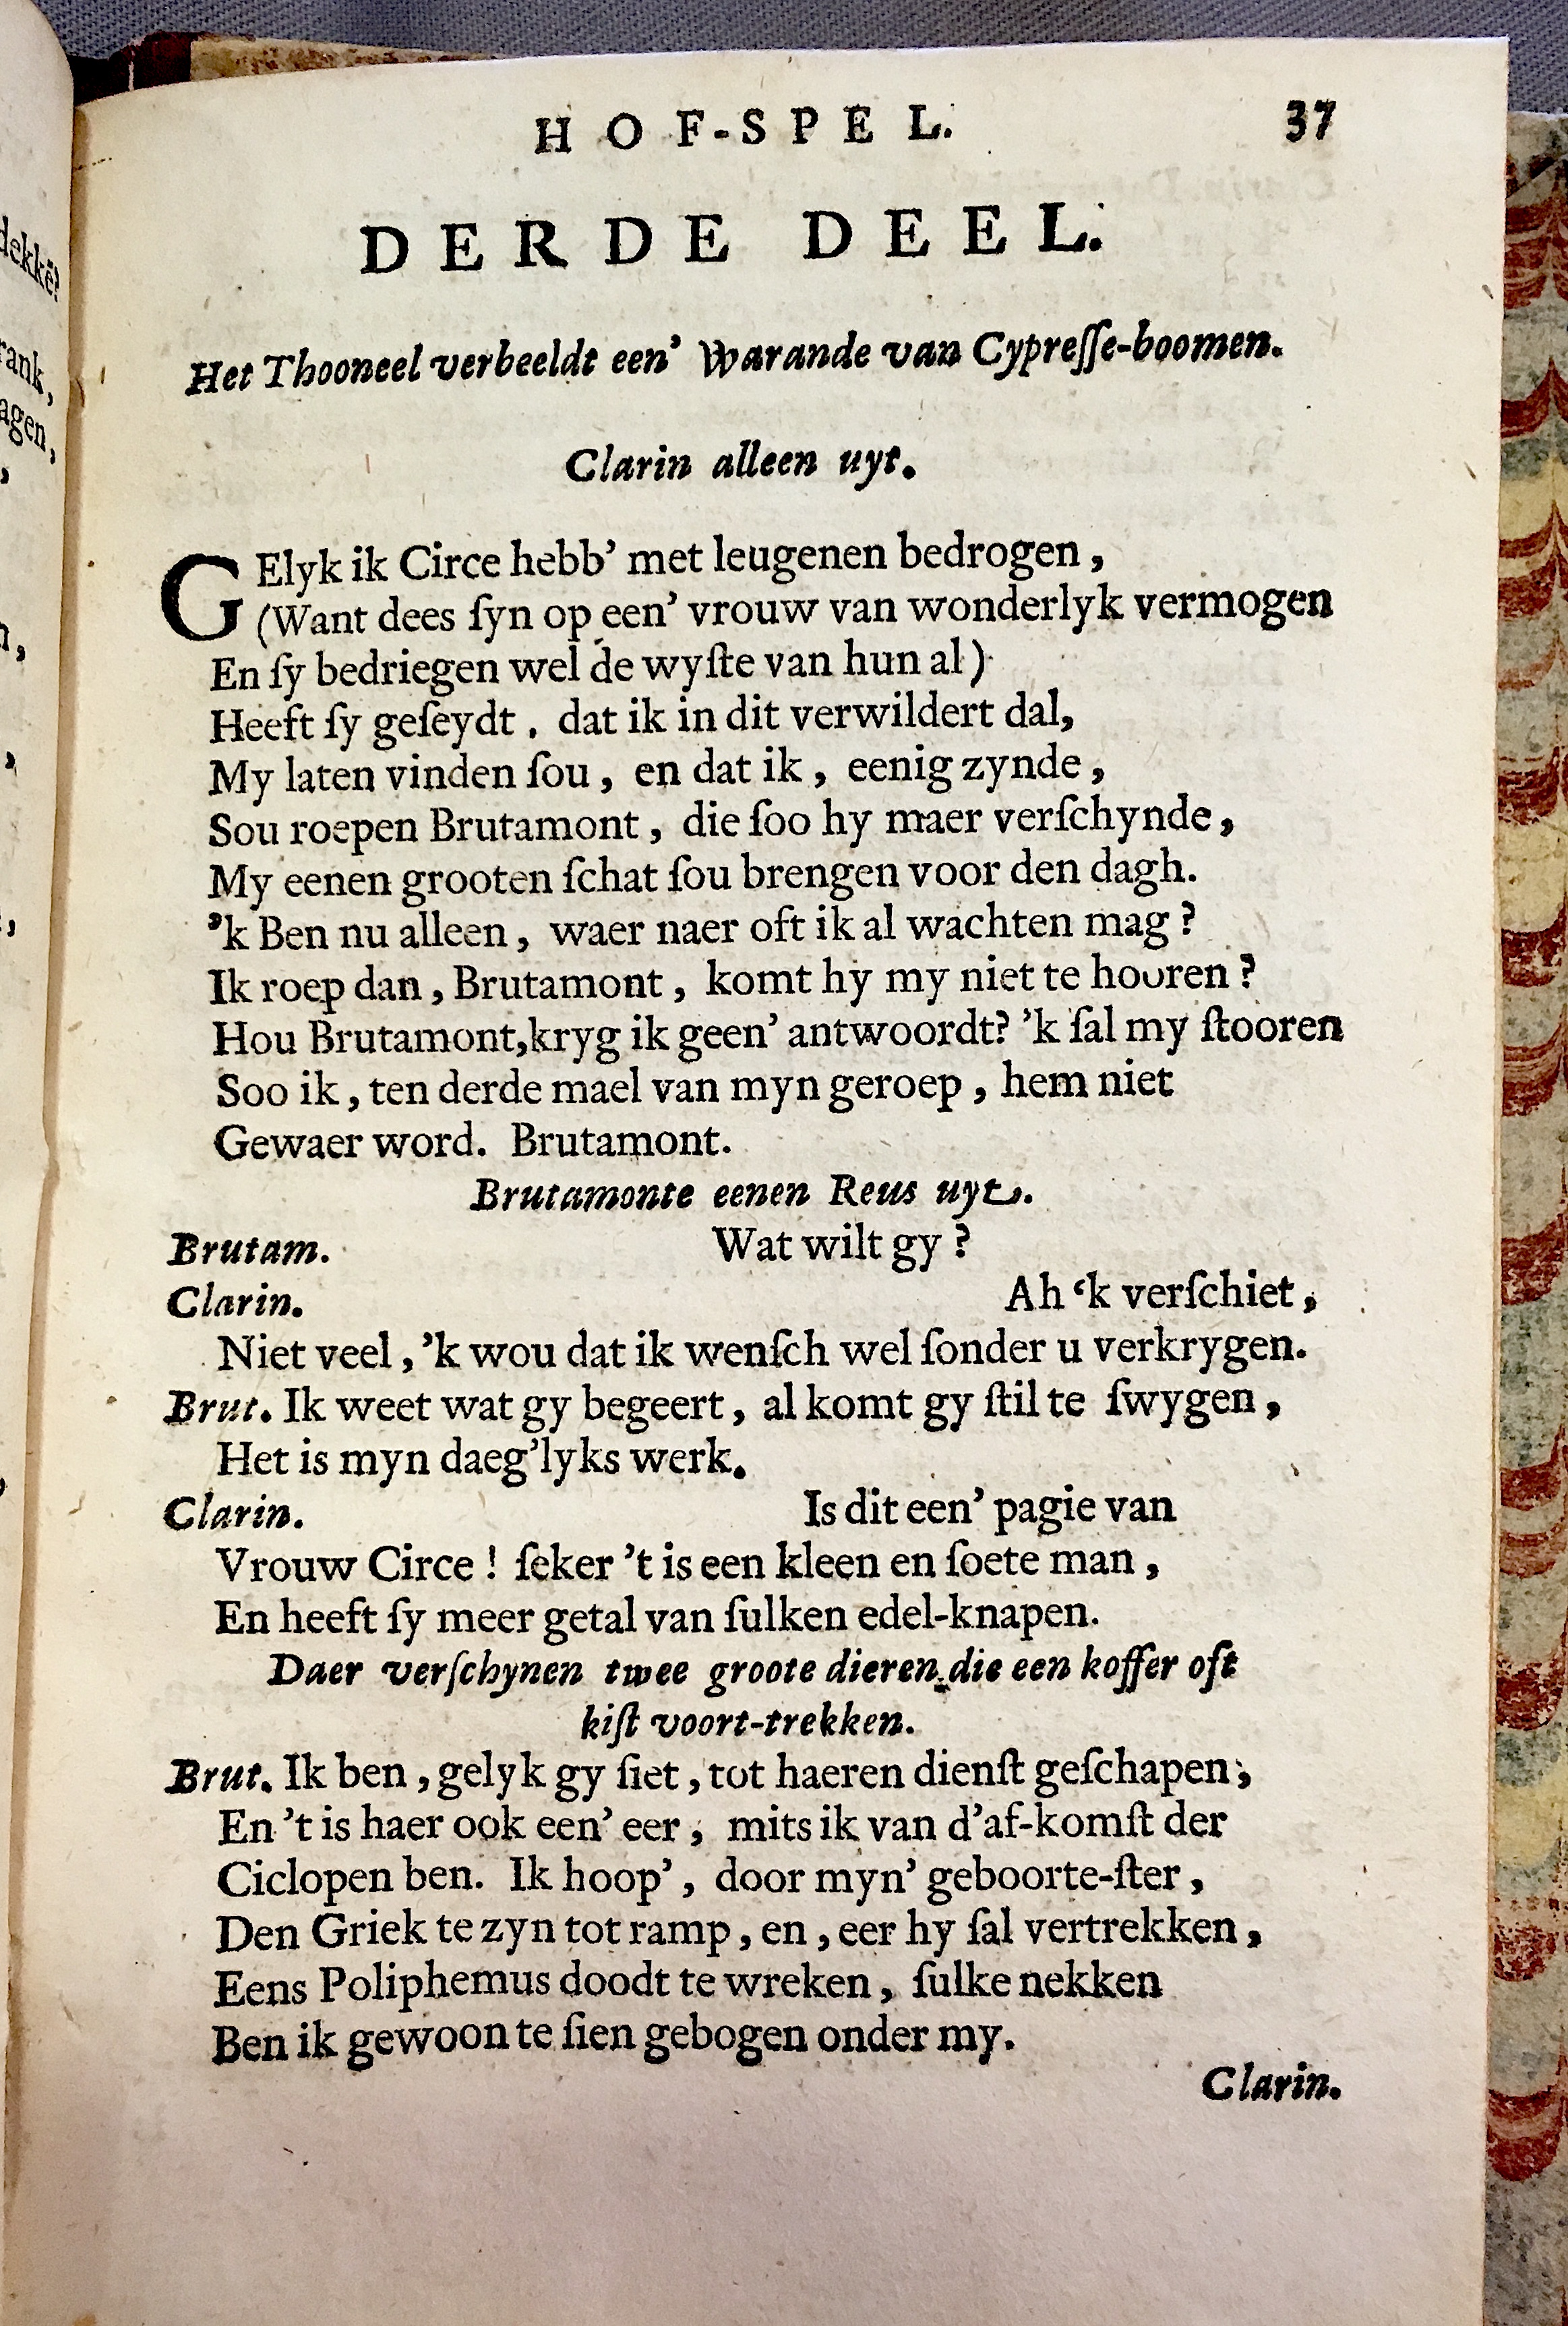 HOF-SPEL. 37
DERDE DEEL.
Het Thooneel verbeeldt een' Warande van Cypreſſe-boomen.
Clarin alleen uyt.
GElyk ik Circe hebb' met leugenen bedrogen,
(Want dees ſyn op een' vrouw van wonderlyk vermogen
En ſy bedriegen wel de wyſte van hun al)
Heeft ſy geſeydt. dat ik in dit verwildert dal,
My laten vinden ſou, en dat ik, eenig zynde,
Sou roepen Brutamont, die ſoo hy maer verſchynde,
My eenen grooten ſchat ſou brengen voor den dagh.
'k Ben nu alleen, waer naer oft ik al wachten mag?
Ik roep dan, Brutamont, komt hy my niet te hooren?
Hou Brutamont, kryg ik geen' antwoordt? 'k ſal my ſtooren
Soo ik, ten derde mael van myn geroep, hem niet
Gewaer word. Brutamont.
Brutamonte eenen Reus uyt.
Brutam. Wat wilt gy?
Clarin. Ah ‘k verſchiet,
Niet veel, 'k wou dat ik wenſch wel ſonder u verkrygen.
Brut. Ik weet wat gy begeert, al komt gy ſtil te ſwygen,
Het is myn daeg'lyks werk.
Clarin. Is dit een' pagie van
Vrouw Circe! ſeker 't is een kleen en ſoete man,
En heeft ſy meer getal van ſulken edel-knapen.
Daer verſchynen twee groote dieren die een koffer oft
kiſt voort-trekken.
Brut. Ik ben, gelyk gy ſiet, tot haeren dienſt geſchapen;
En 't is haer ook een' eer, mits ik van d'af-komſt der
Ciclopen ben. Ik hoop', door myn' geboorte-ſter,
Den Griek te zyn tot ramp, en, eer hy ſal vertrekken,
Eens Poliphemus doodt te wreken, ſulke nekken
Ben ik gewoon te ſien gebogen onder my.
Clarin.